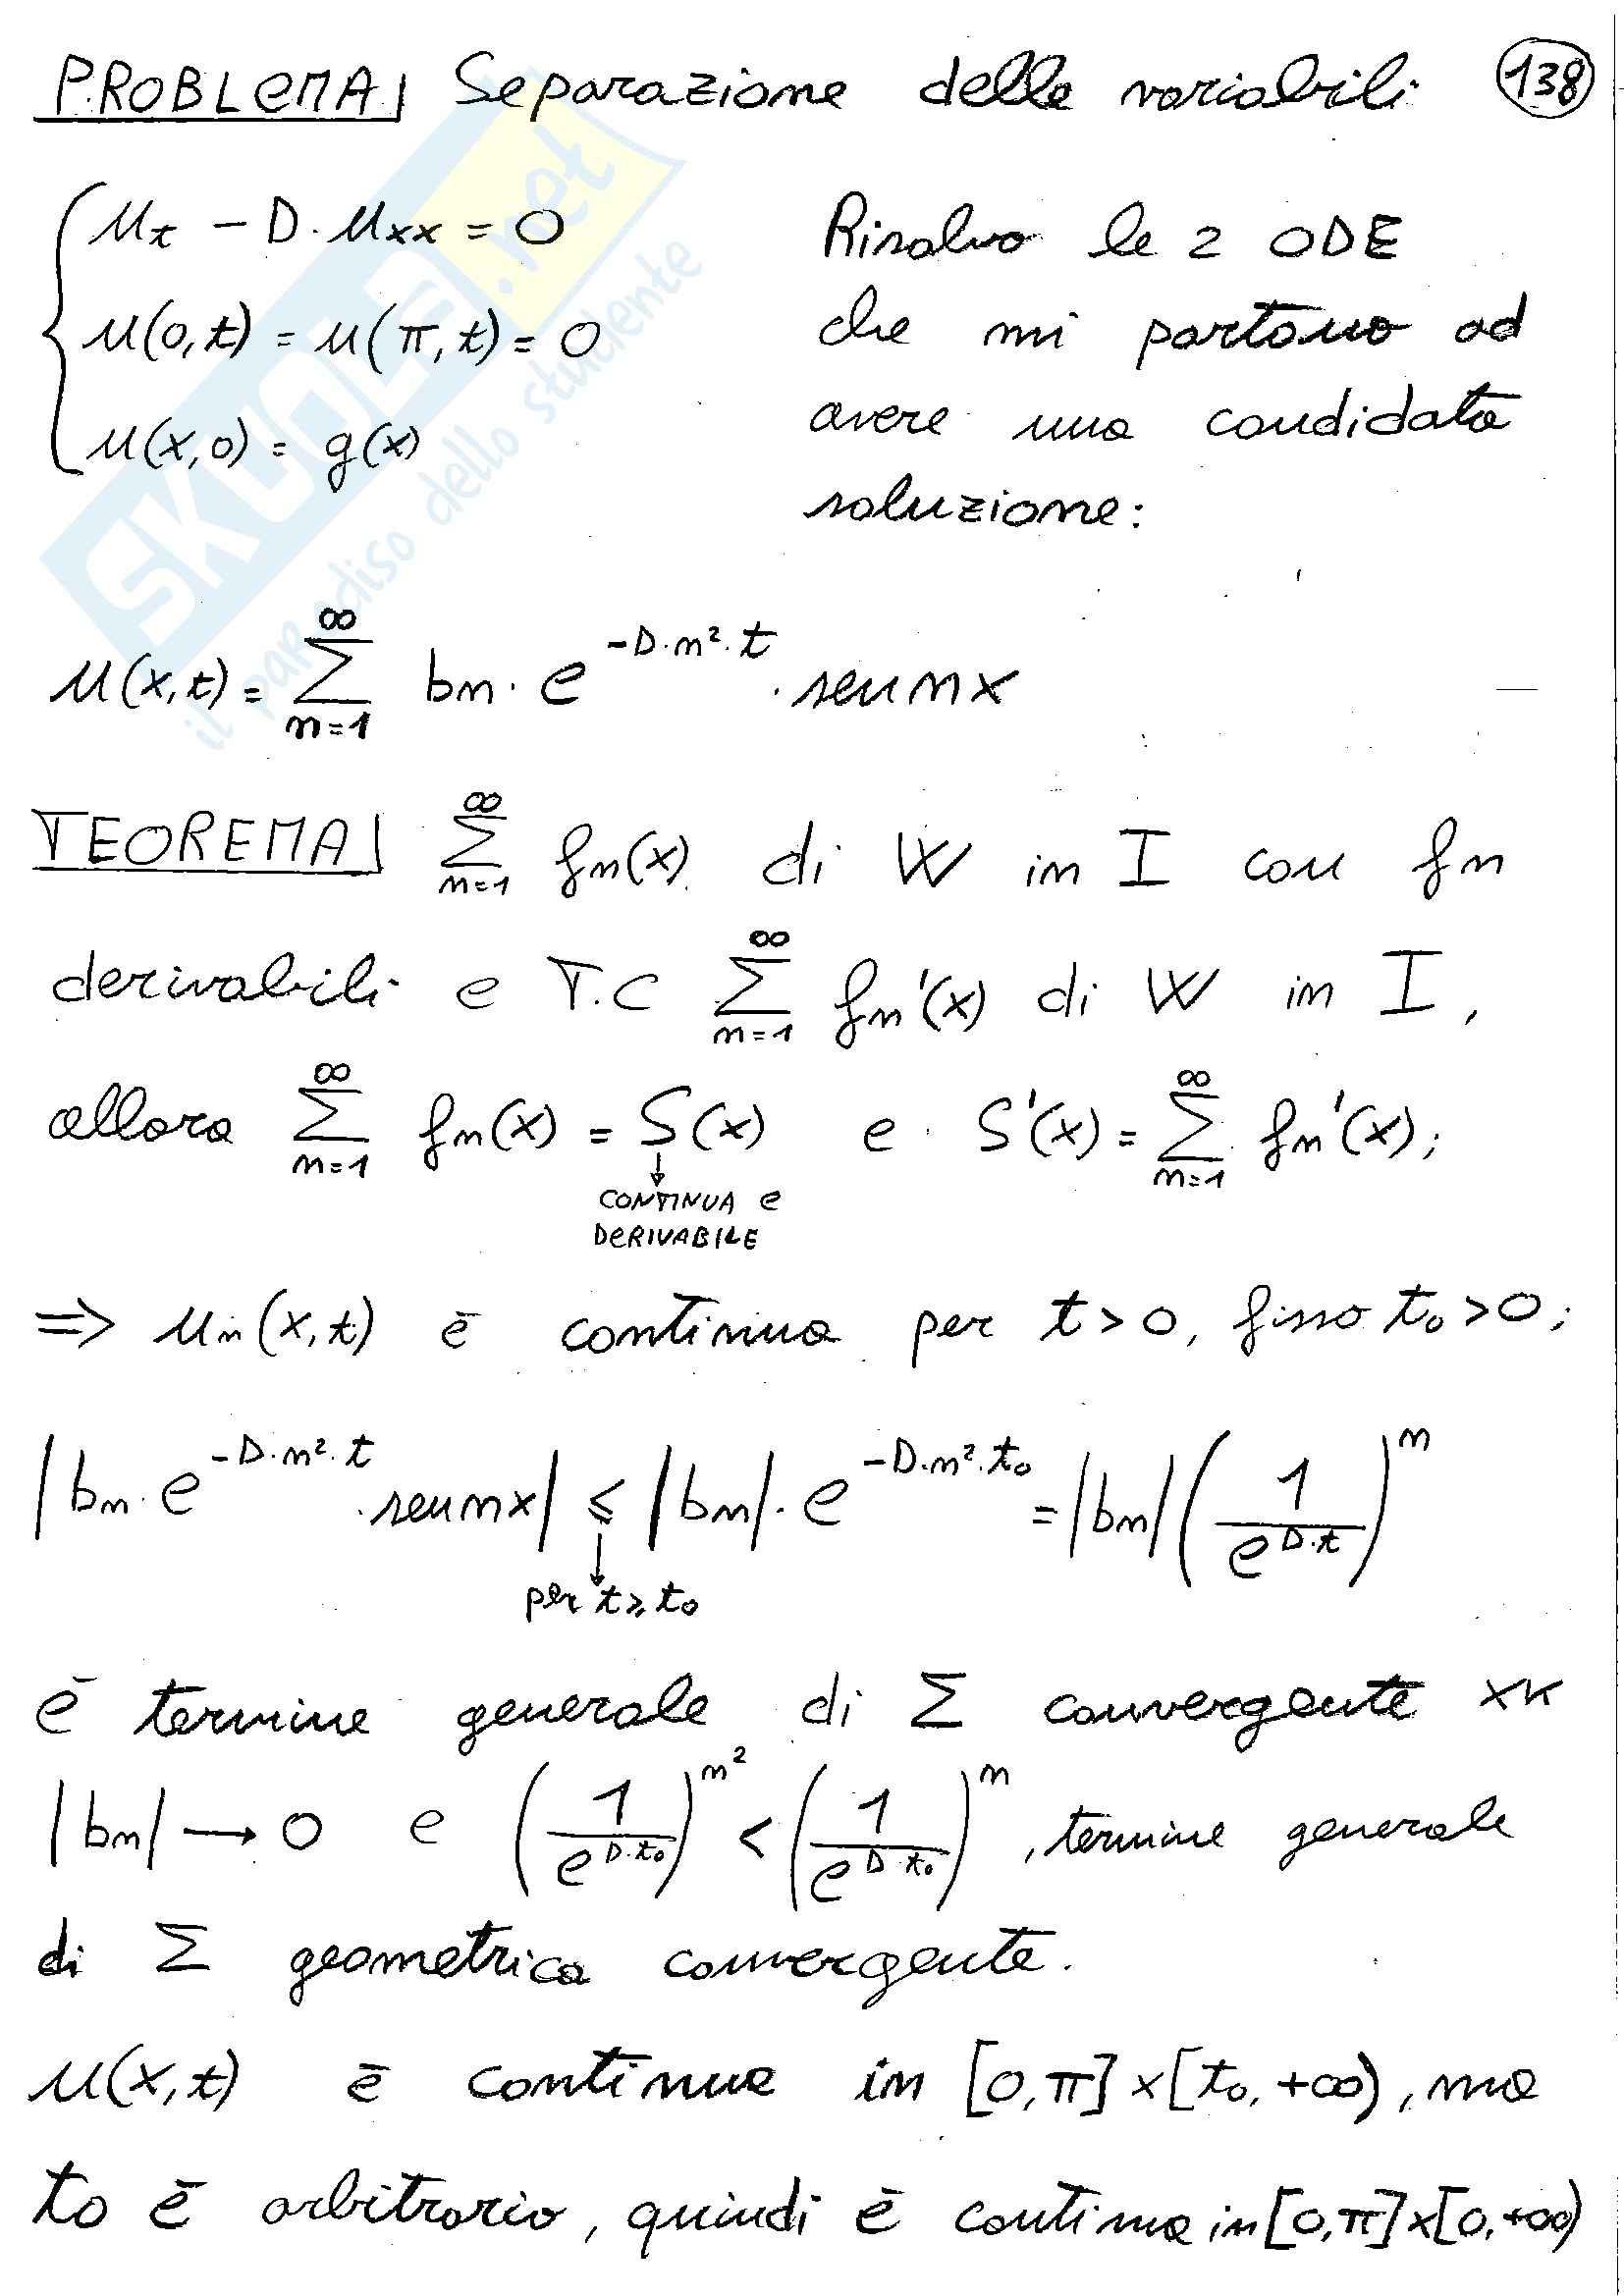 PROBLEMA| Separazione delle variabili 138
{ u_t - D·u_xx = 0
u(0,t) = u(π,t) = 0
u(x,0) = g(x)
Risolvo le 2 ODE
che mi portano ad
avere una candidata
soluzione:
u(x,t) = ∑_{n=1}^{∞} bn · e^{-D·n²·t} · sen nx
TEOREMA| ∑_{n=1}^{∞} fn(x) di W in I con fn
derivabili e T.C ∑_{n=1}^{∞} fn'(x) di W in I,
allora ∑_{n=1}^{∞} fn(x) = S(x) e S'(x) = ∑_{n=1}^{∞} fn'(x);
↓
CONTINUA e
DERIVABILE
=> un(x,t) è continua per t>0, fisso t₀>0;
|bn·e^{-D·n²·t}·sen nx| ≤ |bn|·e^{-D·n²·t₀} = |bn|(1/e^{D·t})^n
↓
per t≥t₀
è termine generale di Σ convergente xk
|bn| → 0 e (1/e^{D·t₀})^{n²} < (1/e^{D·t₀})^n, termine generale
di Σ geometrica convergente.
u(x,t) è continua in [0,π]×[t₀,+∞), ma
t₀ è arbitrario, quindi è continua in [0,π]×[0,+∞)
SKUOLA.net
il paradiso dello studente